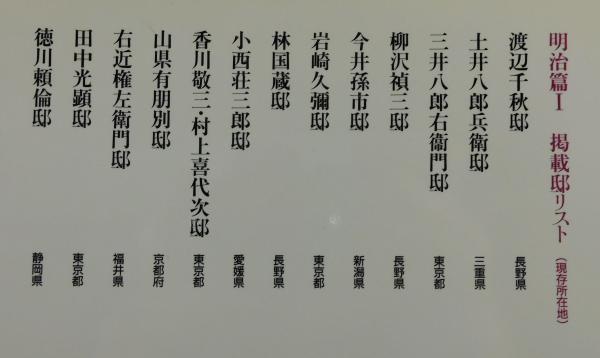 明治篇Ⅰ 掲載邸リスト（現存所在地）
渡辺千秋邸 長野県
土井八郎兵衛邸 三重県
三井八郎右衞門邸 東京都
柳沢禎三邸 長野県
今井孫市邸 新潟県
岩崎久彌邸 東京都
林国蔵邸 長野県
小西荘三郎邸 愛媛県
香川敬三・村上喜代次邸 東京都
山県有朋別邸 京都府
右近権左衛門邸 福井県
田中光顕邸 東京都
徳川頼倫邸 静岡県